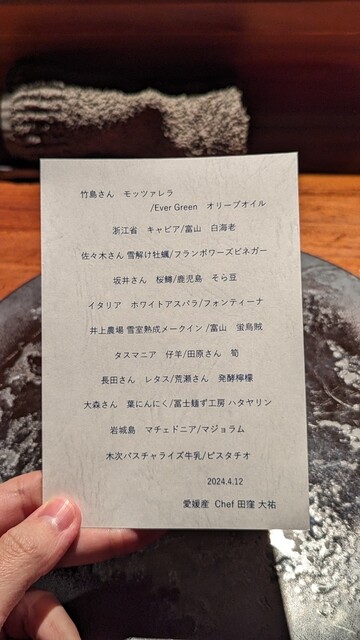 竹島さん　モッツァレラ
/Ever Green　オリーブオイル
浙江省　キャビア/富山　白海老
佐々木さん 雪解け牡蠣/フランボワーズビネガー
坂井さん　桜鱒/鹿児島　そら豆
イタリア　ホワイトアスパラ/フォンティーナ
井上農場 雪室熟成メークイン /富山　蛍烏賊
タスマニア　仔羊/田原さん　筍
長田さん　レタス/荒瀬さん　発酵檸檬
大森さん　葉にんにく/冨士麺ず工房 ハタヤリン
岩城島　マチェドニア/マジョラム
木次パスチャライズ牛乳/ピスタチオ
2024.4.12
愛媛産　Chef 田窪 大祐